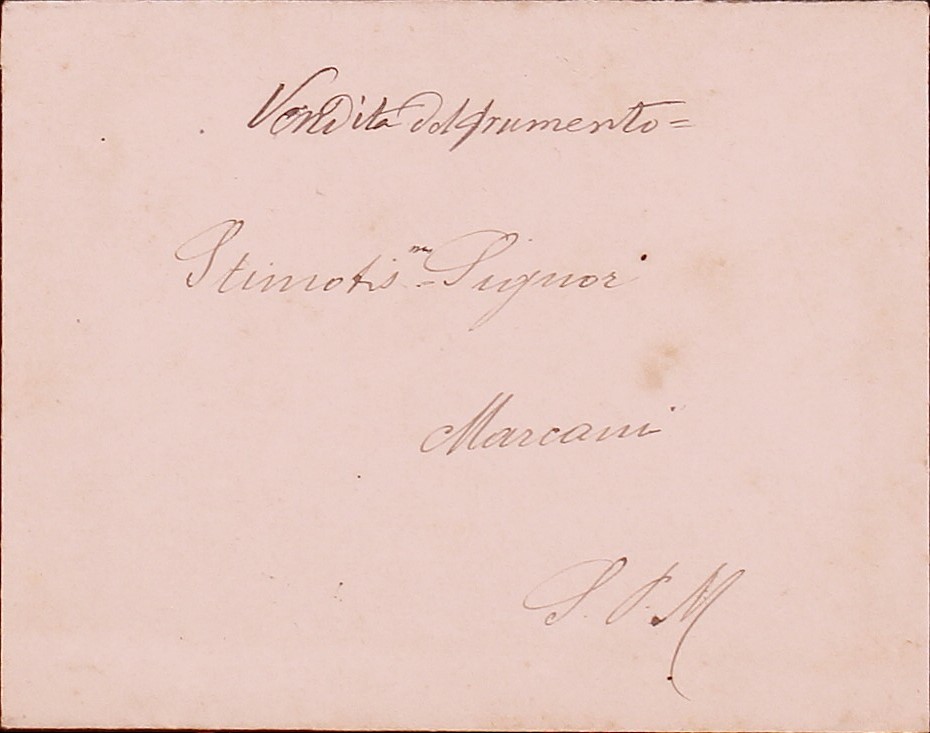 Vendita del frumento=
Stimatis.mo Signor
Marcani
S. P. M